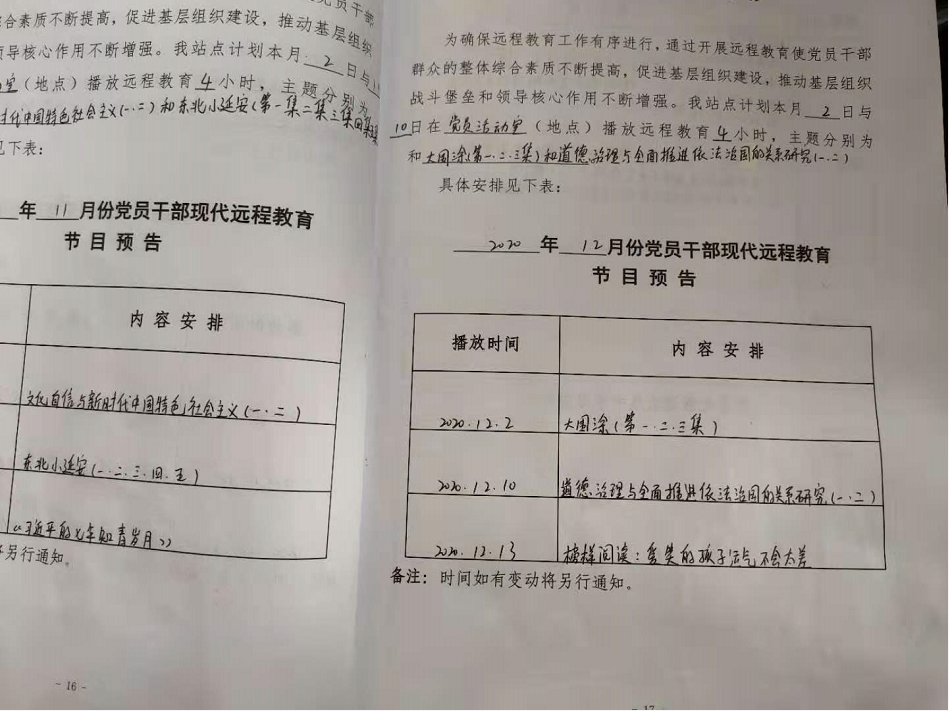 党员干部
综合素质不断提高，促进基层组织建设，推动基层组织
领导核心作用不断增强。我站点计划本月 2 日与
室（地点）播放远程教育 4 小时，主题分别为
时代中国特色社会主义(一.二)和东北小延安(第一集二集三集四集
见下表：
年 11 月份党员干部现代远程教育
节目预告
内容安排
文化自信与新时代中国特色社会主义(一.二)
东北小延安(一.二.三.四.五)
《习近平的七年知青岁月》
另行通知。
- 16 -
为确保远程教育工作有序进行，通过开展远程教育使党员干部
群众的整体综合素质不断提高，促进基层组织建设，推动基层组织
战斗堡垒和领导核心作用不断增强。我站点计划本月 2 日与
10日在 党员活动室 （地点）播放远程教育 4 小时，主题分别为
和大国涂(第一.二.三集)和道德治理与全面推进依法治国的关系研究(一.二)
具体安排见下表：
2020 年 12 月份党员干部现代远程教育
节目预告
播放时间 内容安排
2020.12.2 大国涂(第一.二.三集)
2020.12.10 道德治理与全面推进依法治国的关系研究(一.二)
2020.12.13 榜样阅读：爱笑的孩子运气不会太差
备注：时间如有变动将另行通知。
- 17